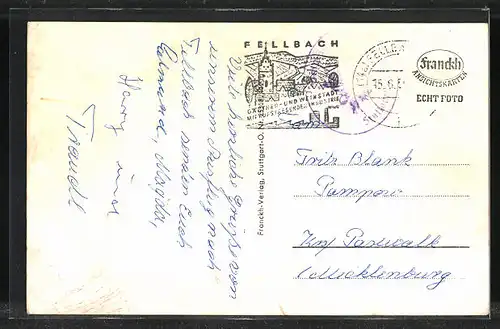 Viele herzliche Grüße von
unserem Ausflug nach
Fellbach senden Euch
Edmund, Magda,
Harry und
Traudl
Franckh-Verlag, Stuttgart-O.
FELLBACH
GÄRTNER- UND WEINSTADT
MIT AUFSTREBENDER INDUSTRIE
15.6.5
Franckh
ANSICHTSKARTEN
ECHT FOTO
Fritz Blank
Pampow
Krs/ Pasewalk
(Mecklenburg